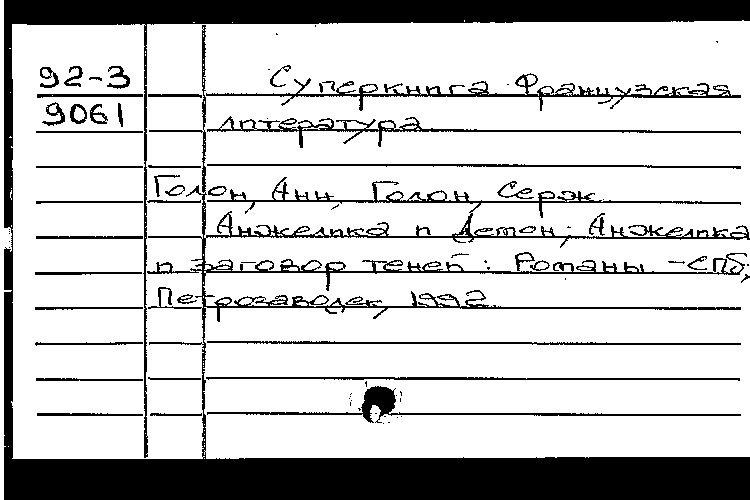 92-3 Суперкнига. Французская
9061 литература
Голон, Анн, Голон, Серж
Анжелика и Демон; Анжелика
и заговор теней: Романы. -СПб;
Петрозаводск, 1992